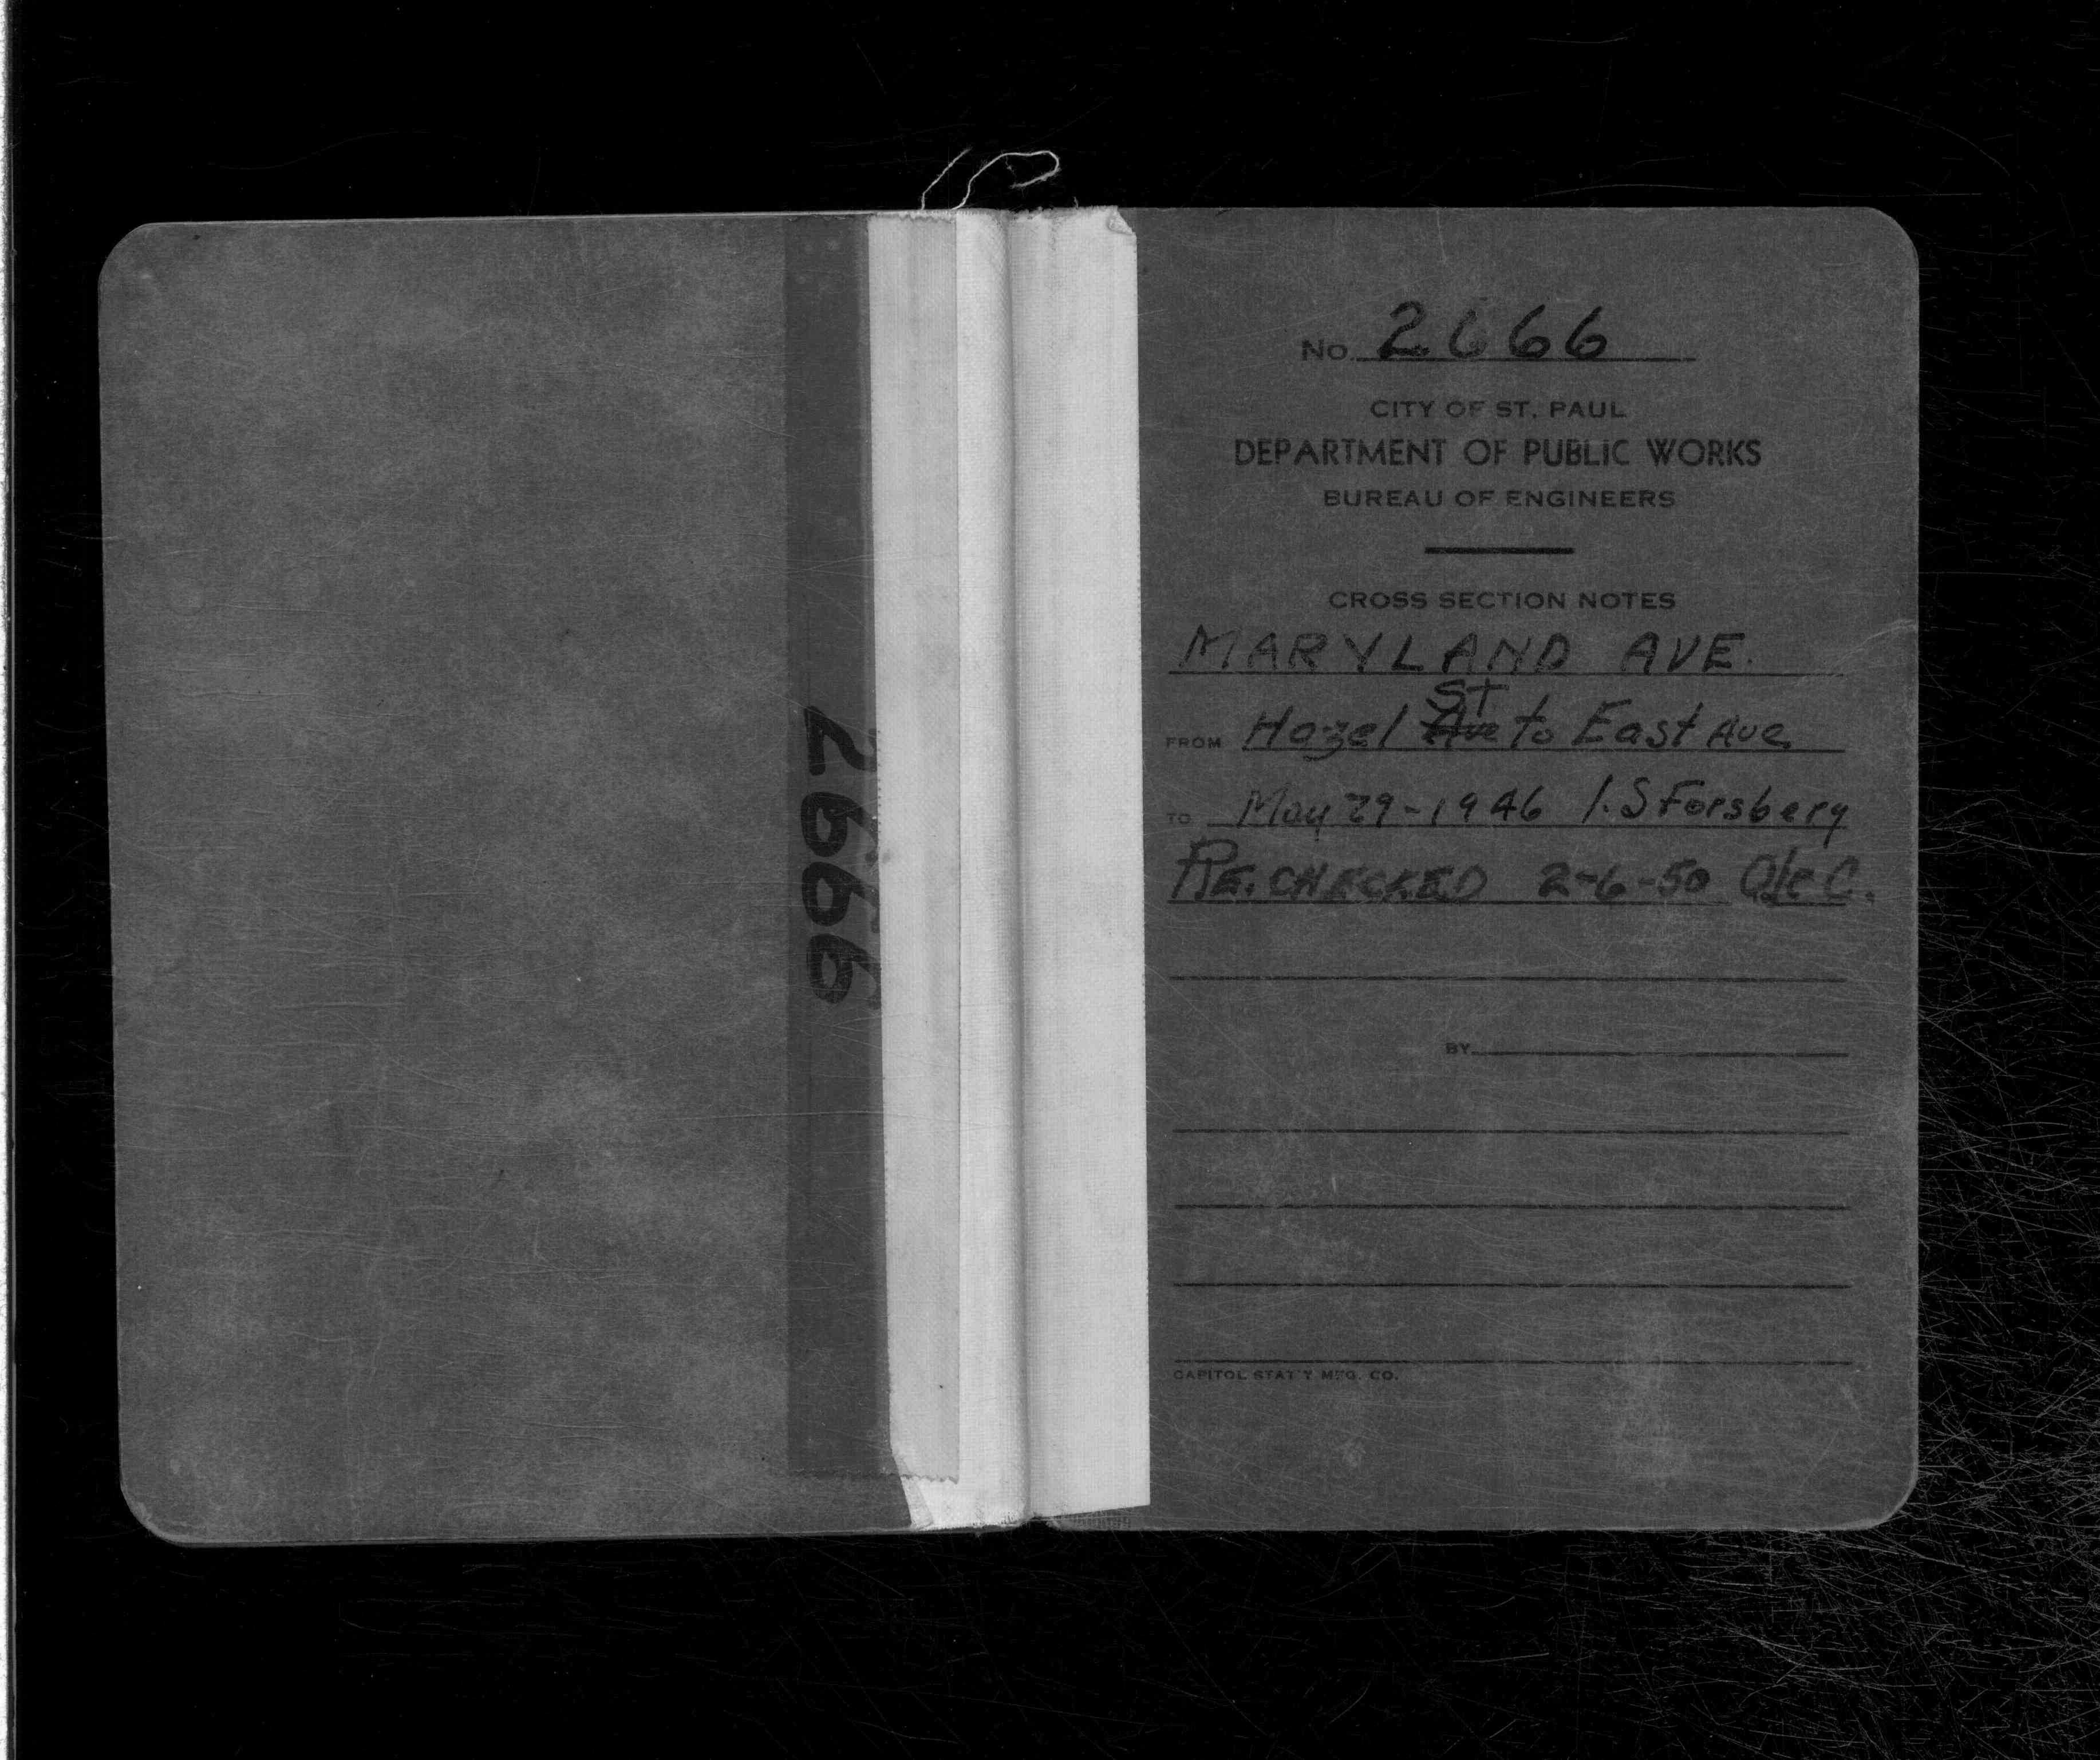 2666
No. 2666
CITY OF ST. PAUL
DEPARTMENT OF PUBLIC WORKS
BUREAU OF ENGINEERS
CROSS SECTION NOTES
MARYLAND AVE.
ST
FROM Hazel Ave to East Ave
TO May 29-1946 I.S Forsberg
RE.CHECKED 2-6-50
BY
CAPITOL STAT'Y MFG. CO.